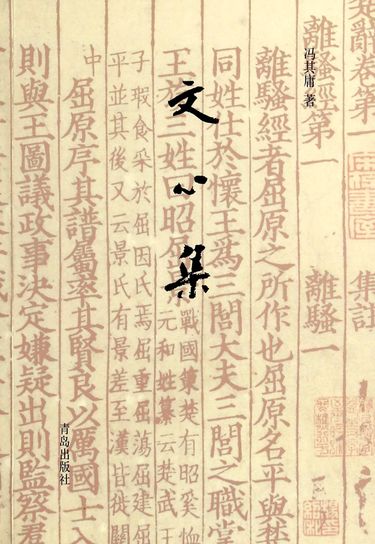 文心集
冯其庸 著
青岛出版社
辭卷第一 集註
離騷經第一 離騷一
離騷經者屈原之所作也屈原名平與楚
同姓仕於懷王爲三閭大夫三閭之職掌
王族三姓曰昭屈
戰國策楚有昭奚恤
元和姓纂云楚武王
子瑕食采於屈因氏焉屈重屈蕩屈建屈
平並其後又云景氏有景差至漢皆徙關
中
屈原序其譜屬率其賢良以厲國士入
則與王圖議政事決定嫌疑出則監察羣